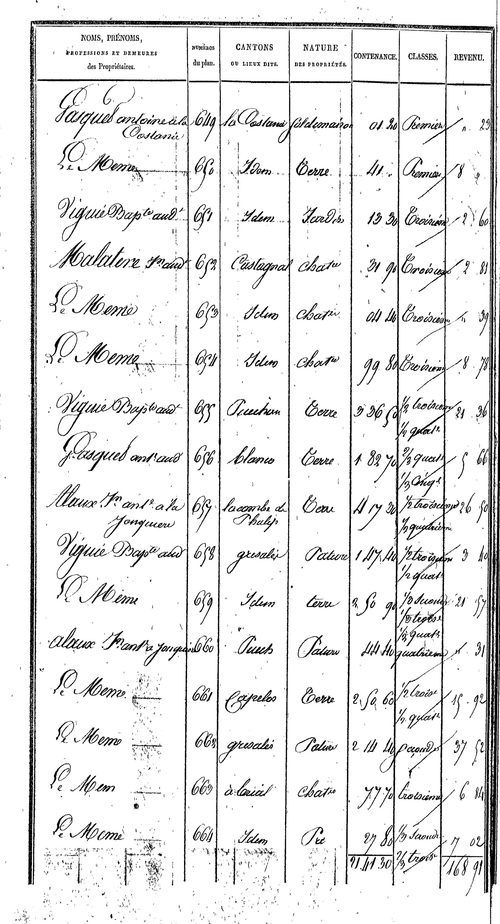 NOMS, PRÉNOMS, PROFESSIONS ET DEMEURES des Propriétaires. NUMÉROS du plan. CANTONS OU LIEUX DITS. NATURE DES PROPRIÉTÉS. CONTENANCE. CLASSES. REVENU.
Gasquet antoine à la Costanie 649 la Costanie sol de maison 01 20 Premier " 23
Le Meme 650 Idem Terre 41 " Premier 8 "
Viguié Bapte audt 651 Idem Jardin 13 30 Troisiem 2 60
Malaterre Jn audt 652 Castagnal chatre 31 90 Troisiem 2 81
Le Meme 653 Idem chatre 04 40 Troisiem " 39
Le Meme 654 Idem chatre 99 80 Troisiem 8 78
Viguié Bapte audt 655 Puechou Terre 3 36 50 1/2 troisiem 21 36
1/2 quatr
Gasquet ant audt 656 blanco Terre 1 82 70 2/3 quatr 5 66
1/3 cinqe
Alaux Jn ant à la Jonquiere 657 la combe de Phalip Terre 4 17 30 1/2 troisiem 26 50
1/2 quatriem
Viguié Bapte audt 658 gresalié Pature 1 47 40 1/2 troisiem 3 40
1/2 quatr
Le Meme 659 Idem terre 2 50 90 1/3 second 21 57
1/3 trois
1/3 quatr
alaux Jn ant à Jonquiere 660 Puech Pature 44 40 quatriem " 31
Le Meme 661 Capelos Terre 2 50 60 1/2 trois 15 92
1/2 quatr
Le Meme 662 gresalié Pature 2 14 40 seconde 37 52
Le Mem 663 chatre 77 70 troisiem 6 84
Le Meme 664 Idem Pre 27 80 1/3 second 7 02
2/3 trois
21 41 30 168 91